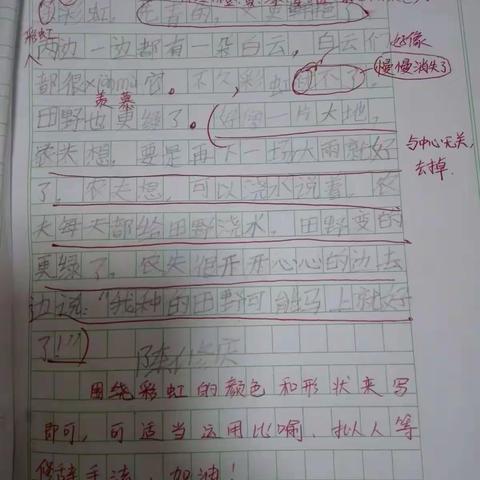 彩虹
两边一边都有一朵白云，白云们
好像
都很xiàn mù它。不久彩虹不了。
慢慢消失了
羡慕
田野也更绿了。好像一片大地。
农夫想，要是再下一场大雨就好
与中心无关，
去掉.
了。农夫想，可以浇水说着，农
夫每天都给田野浇水。田野变的
更绿了。农夫很开开心心的边走
边说："我种的田野可能马上就好
了！"
围绕彩虹的颜色和形状来写
即可，可适当运用比喻、拟人等
修辞手法，加油！